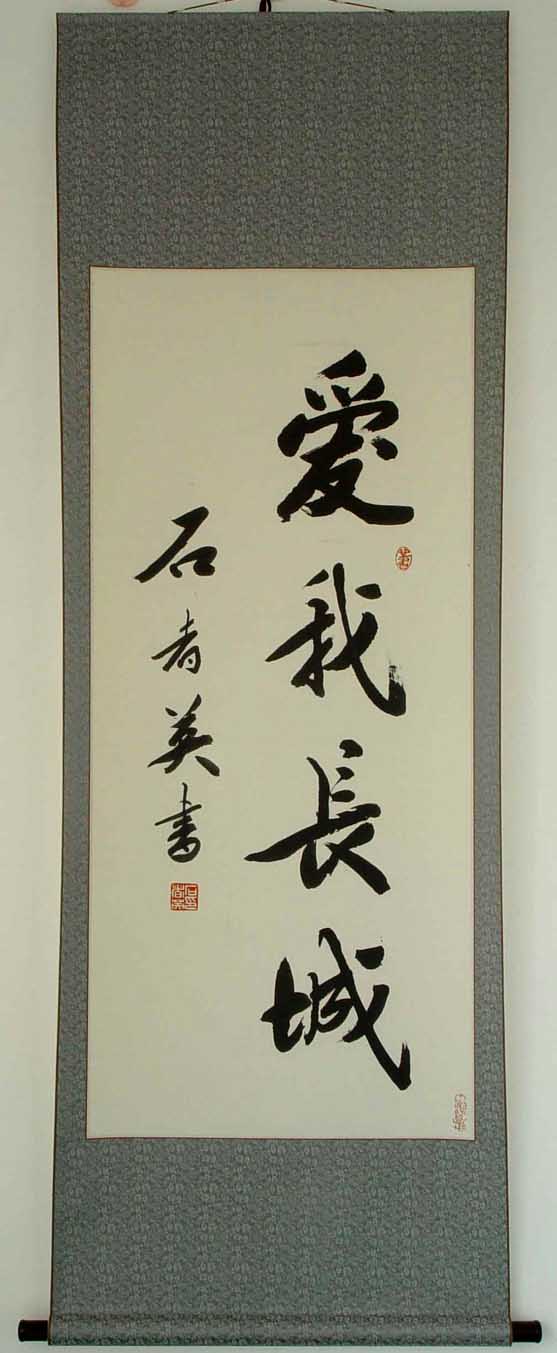 愛我長城
石者英書